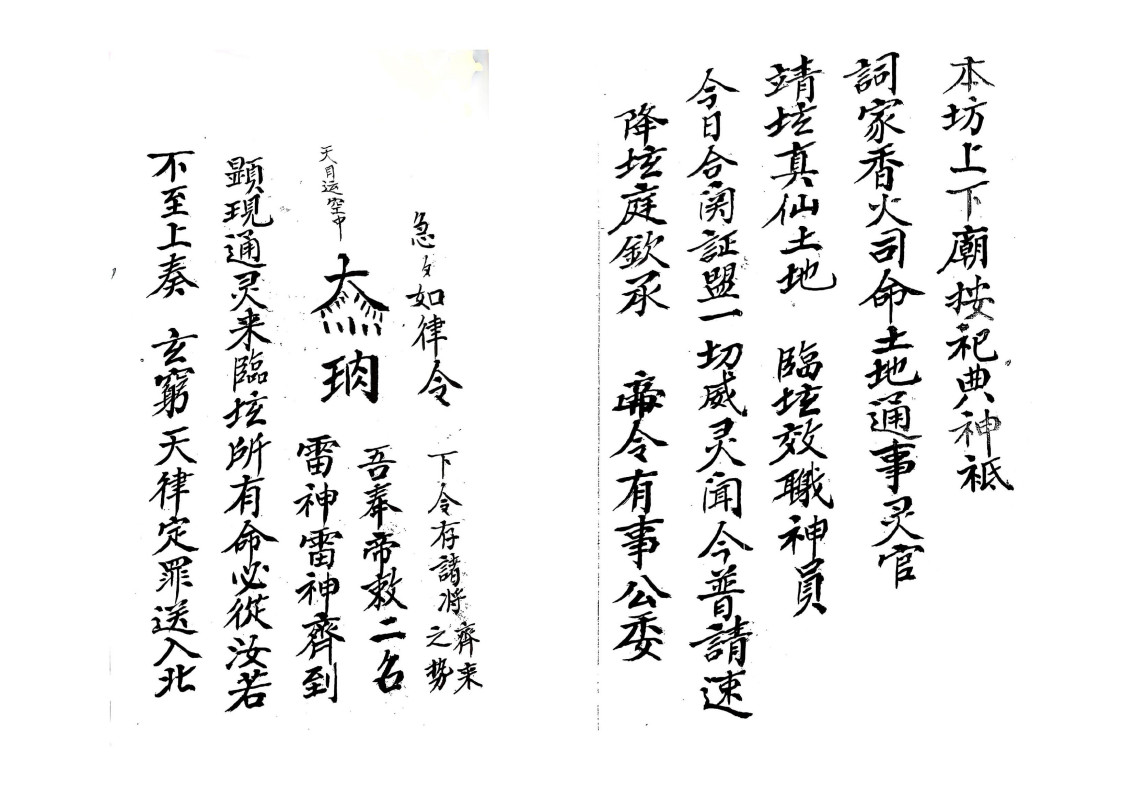 本坊上下廟按祀典神祗
詞家香火司命土地通事灵官
靖坛真仙土地 臨坛效職神員
今日合闵証盟一切威灵聞今普請速
降坛庭欽承 帝令有事公委
急々如律令 下令存諸将齊来之势
吾奉帝敕二名
天目运空中
雷神雷神齊到
顕現通灵来臨坛所有命必從汝若
不至上奏 玄窮天律定罪送入北